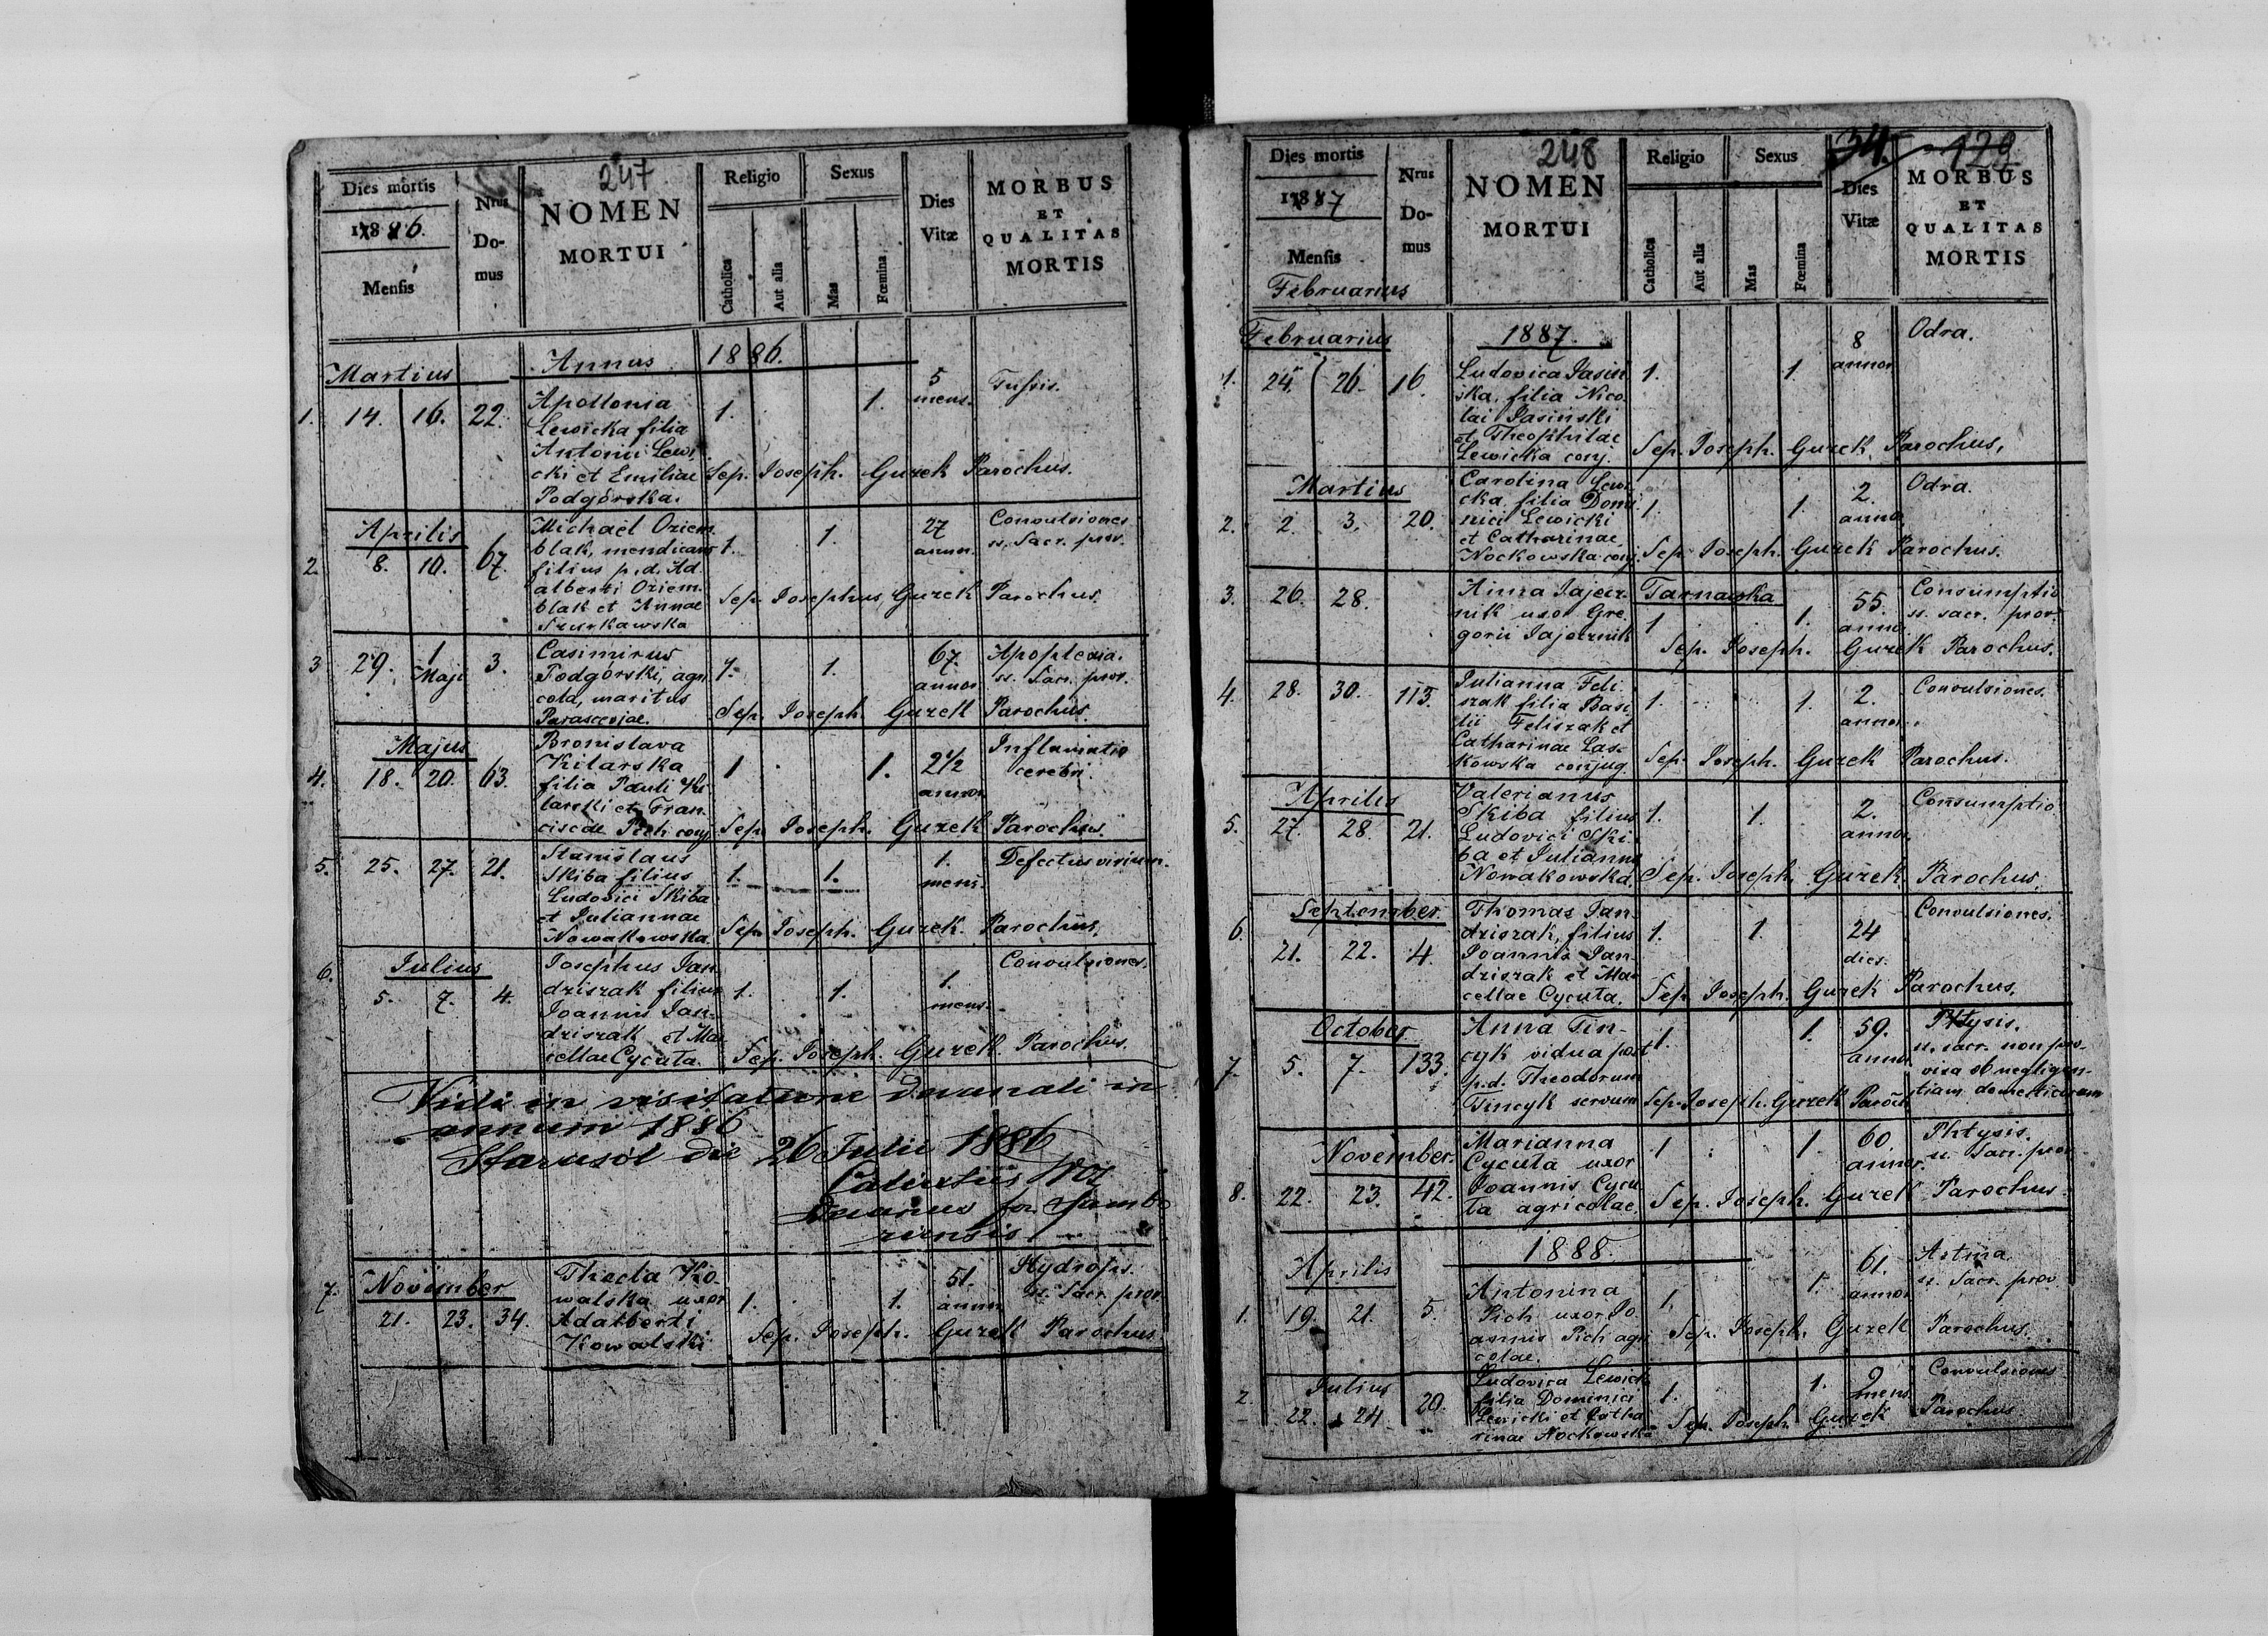 247
Dies mortis
1886.
Mensis
Nrus
Do-
mus
NOMEN
MORTUI
Religio
Catholica
Aut alia
Sexus
Mas
Fœmina
Dies
Vitæ
MORBUS
ET
QUALITAS
MORTIS
Annus 1886.
Martius
1. 14. 16. 22.
Apollonia
Lewicka filia
Antonii Lewi
cki et Emiliae
Podgórska.
1. 1.
5
mens.
Tussis.
Sep. Joseph. Gurek Parochus.
Aprilis
2. 8. 10. 67.
Michael Oziem
blak, mendicans
filius p. d. Ad
alberti Oziem
blak et Annae
Szurkawska
1. 1.
27
annor.
Convulsiones
ss. Sacr. prov.
Sep. Josephus Gurek Parochus.
3 29. 1
Maji
3.
Casimirus
Podgórski, agri
cola, maritus
Parasceviae.
1. 1.
67.
annor
Apoplexia.
ss. Sacr. prov.
Sep. Joseph. Gurek Parochus.
Majus
4. 18. 20. 63.
Bronislava
Kilarska
filia Pauli Ki
larski et Fran
ciscae Pich conj
1 1.
2 1/2
annor
Inflamatio
cerebri.
Sep. Joseph. Gurek Parochus.
5. 25. 27. 21.
Stanislaus
Skiba filius
Ludovici Skiba
et Juliannae
Nowakowska.
1. 1.
1.
mens.
Defectus virium.
Sep. Joseph. Gurek. Parochus.
Julius
6. 5. 7. 4.
Josephus Jan
driszak filius
Joannis Jan
driszak et Mar
cellae Cycuta.
1. 1.
1.
mens.
Convulsiones.
Sep. Joseph. Gurek. Parochus.
Vidi in visitatione decanali in
annum 1886
Starasól die 26 Julii 1886
Decanus for. Sambo
riensis
November
7. 21. 23. 34.
Thecla Ko-
walska uxor
Adalberti
Kowalski
1. 1.
51.
annor
Hydrops.
ss. Sacr. prov.
Sep. Joseph. Gurek Parochus.
248
34.
129
Dies mortis
1887
Mensis
Februarius
Nrus
Do-
mus
NOMEN
MORTUI
Religio
Catholica
Aut alia
Sexus
Mas
Fœmina
Dies
Vitæ
MORBUS
ET
QUALITAS
MORTIS
Februarius
1887.
1. 24. 26. 16.
Ludovica Jasiń
ska, filia Nico
lai Jasiński
et Theophilae
Lewicka conj.
1. 1.
8
annor
Odra.
Sep. Joseph. Gurek Parochus.
Martius
2. 2 3. 20.
Carolina Lewi
cka filia Domi
nici Lewicki
et Catharinae
Nockowska conj.
1. 1.
2.
annor
Odra.
Sep. Joseph. Gurek Parochus.
3. 26. 28.
Anna Jajecz-
nik uxor Gre
gorii Jajecznik
Tarnawska
1 1.
55.
annor
Consumptio
ss. sacr. prov.
Sep. Joseph. Gurek Parochus.
4. 28. 30. 113.
Julianna Feli
szak filia Basi
lii Feliszak et
Catharinae Las-
kowska conjug.
1. 1.
2.
annor.
Convulsiones.
Sep. Joseph. Gurek Parochus.
Aprilis
5. 27. 28. 21.
Valerianus
Skiba filius
Ludovici Ski-
ba et Julianna
Nowakowska.
1. 1.
2.
annor.
Consumptio
Sep. Joseph. Gurek Parochus.
September
6. 21. 22. 4.
Thomas Jan
driszak, filius
Joannis Jan
driszak et Mar
cellae Cycuta.
1. 1.
24
dies.
Convulsiones.
Sep. Joseph. Gurek Parochus.
October
7. 5. 7. 133.
Anna Tin-
cyk vidua post
p.d. Theodorum
Tincyk servum
1. 1.
59.
annor.
Phtysis.
ss. sacr. non pro-
visa ob negligen-
tiam domesticorum
Sep. Joseph. Gurek Paroch
November.
8. 22. 23. 42.
Marianna
Cycuta uxor
Joannis Cycu
ta agricolae.
1 1.
60.
annor.
Phtysis.
ss. Sacr. prov.
Sep. Joseph. Gurek Parochus.
1888.
Aprilis
1. 19. 21. 5.
Antonina
Pich uxor Jo
annis Pich agri
colae.
1. 1.
61.
annor
Astma.
ss. Sacr. prov.
Sep. Joseph. Gurek Parochus.
Julius
2. 22. 24 20.
Ludovica Lewick
filia Dominici
Lewicki et Catha
rinae Nockowska
1. 1.
9
mens
Convulsiones
Sep. Joseph. Gurek Parochus